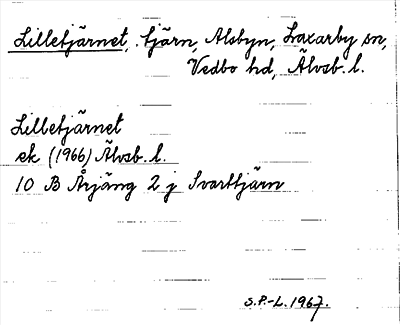 Lilletjärnet, tjärn, Alsbyn, Laxarby sn,
Vedbo hd, Älvsb. l.
Lilletjärnet
ek (1966) Älvsb. l.
10 B Årjäng 2 j Svarttjärn
S.P.-L. 1967.